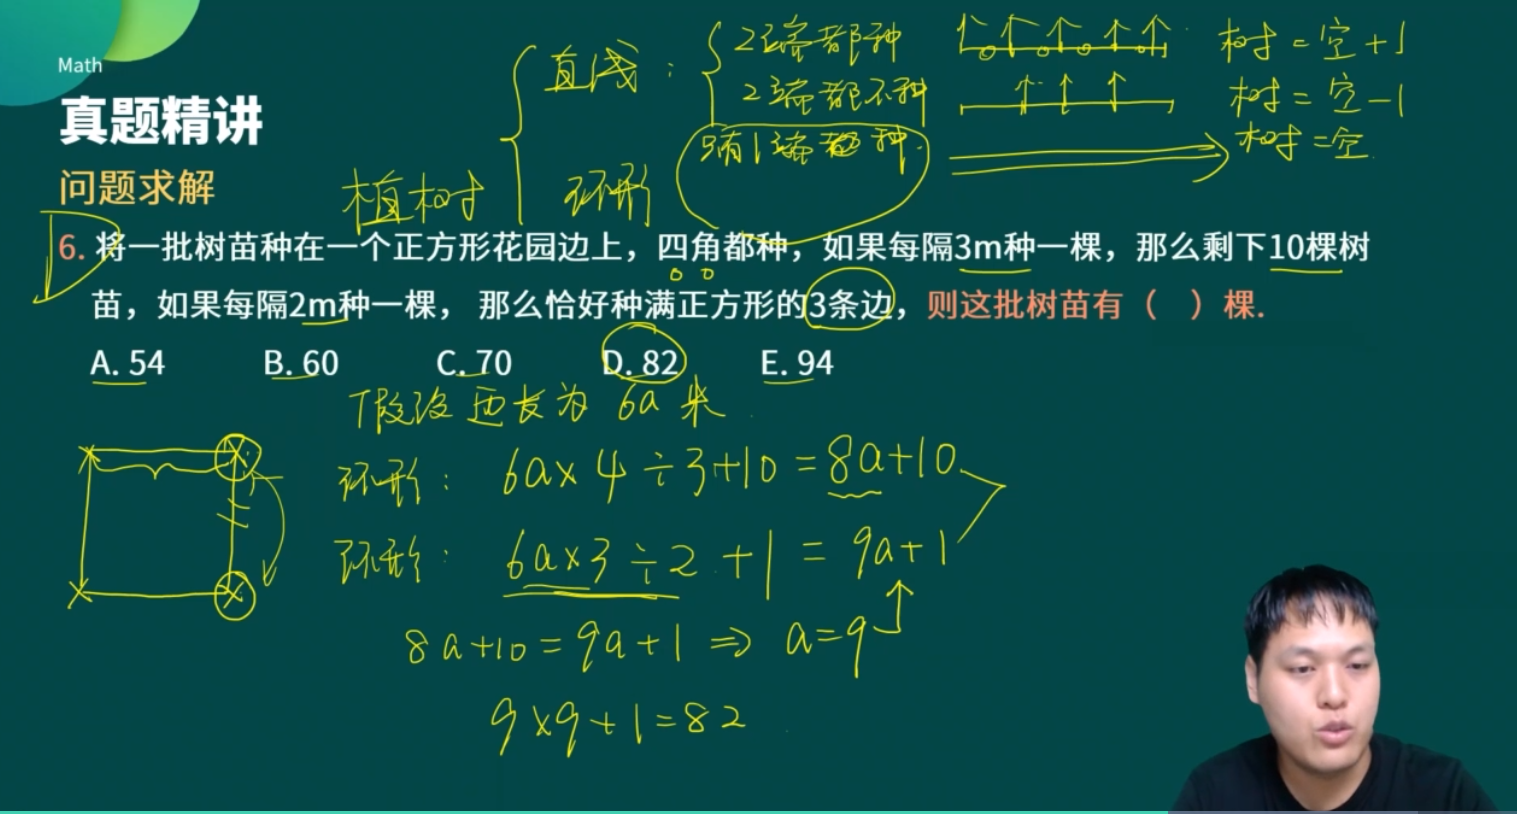 Math
真题精讲
问题求解
植树
直线：
2端都种
树=空+1
2端都不种
树=空-1
只有1端都种
树=空
环形
6. 将一批树苗种在一个正方形花园边上，四角都种，如果每隔3m种一棵，那么剩下10棵树
苗，如果每隔2m种一棵， 那么恰好种满正方形的3条边，则这批树苗有（ ）棵.
A. 54 B. 60 C. 70 D. 82 E. 94
假设边长为 6a 米
环形： 6a×4÷3+10=8a+10
环形： 6a×3÷2+1=9a+1
8a+10=9a+1⇒a=9
9×9+1=82